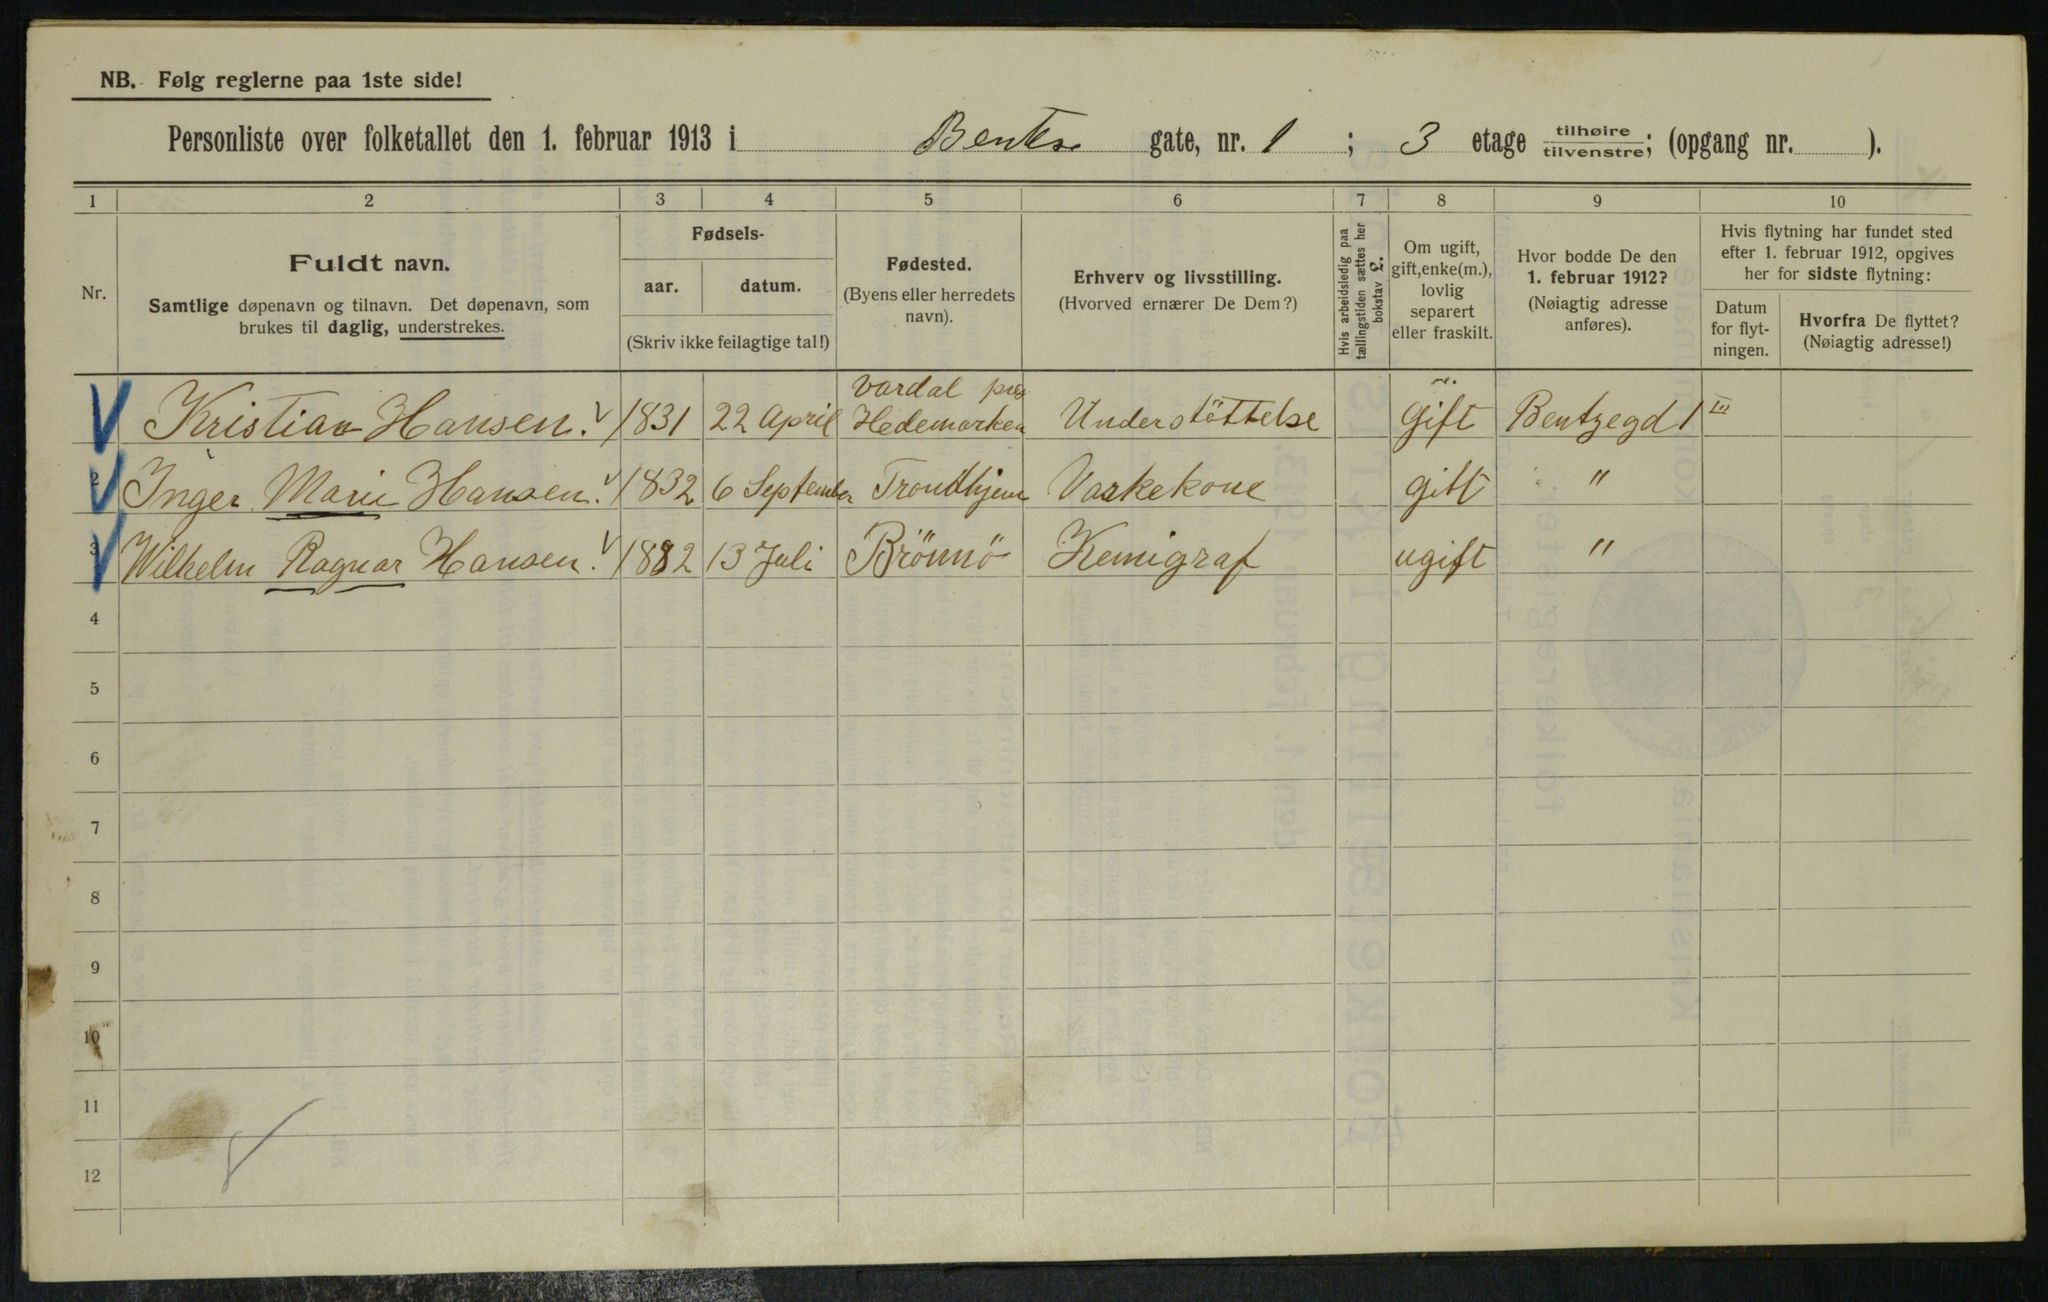 NB. Følg reglerne paa 1ste side!
Personliste over folketallet den 1. februar 1913 i Bentse gate, nr. 1 ; 3 etage tilhøire tilvenstre; (opgang nr. ).
1 2 3 4 5 6 7 8 9 10
Nr.
Fuldt navn.
Samtlige døpenavn og tilnavn. Det døpenavn, som
brukes til daglig, understrekes.
Fødsels-
aar. datum.
(Skriv ikke feilagtige tal!)
Fødested.
(Byens eller herredets
navn).
Erhverv og livsstilling.
(Hvorved ernærer De Dem?)
Hvis arbeidsledig paa
tællingstiden sættes her
bokstav L.
Om ugift,
gift, enke(m.),
lovlig
separert
eller fraskilt.
Hvor bodde De den
1. februar 1912?
(Nøiagtig adresse
anføres).
Hvis flytning har fundet sted
efter 1. februar 1912, opgives
her for sidste flytning:
Datum
for flyt-
ningen.
Hvorfra De flyttet?
(Nøiagtig adresse!)
Vardal
1 Kristian Hansen. 1831 22 April Hedemarken Understöttelse gift Bentzegd 1 III
2 Inger Marie Hansen. 1832 6 September Trondhjem Vaskekone gift "
3 Wilhelm Ragnar Hansen. 1882 13 Juli Brönnö Kemigraf ugift "
4
5
6
7
8
9
10
11
12